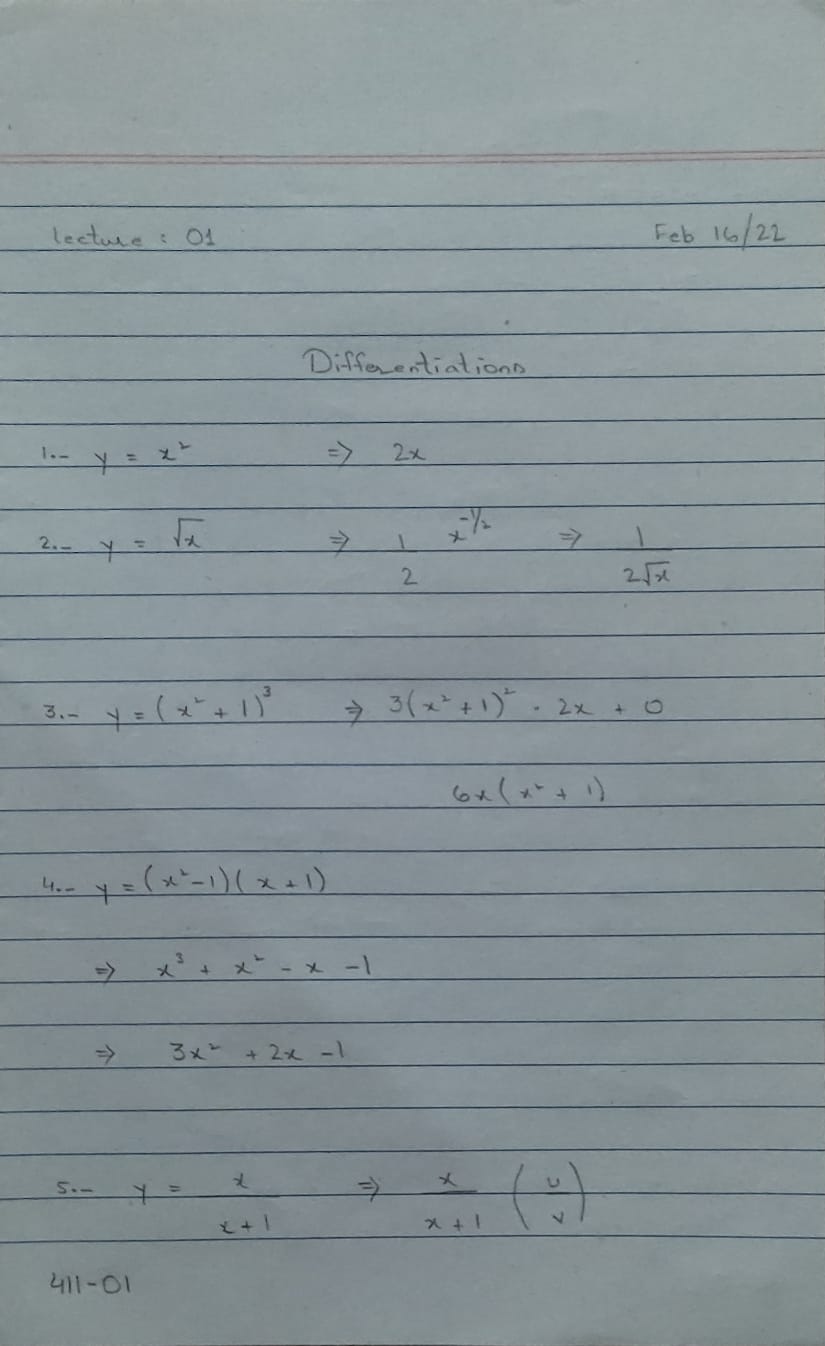 lecture : 01 Feb 16/22
Differentiations
1.- y = x² => 2x
2.- y = √x => 1/2 x^-1/2 => 1/2√x
3.- y = (x² + 1)³ => 3(x² + 1)² . 2x + 0
6x(x² + 1)
4.- y = (x²-1)(x + 1)
=> x³ + x² - x - 1
=> 3x² + 2x - 1
5.- y = x/x+1 => x/x+1 (u/v)
411-01